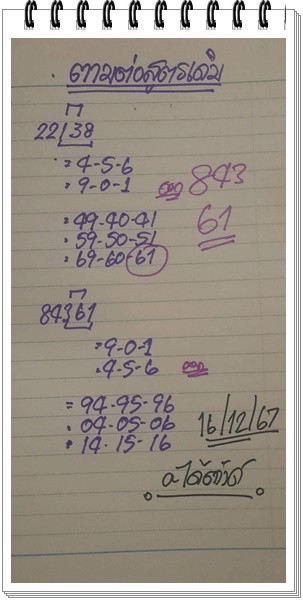 ตามต่อสูตรเดิม
22/38
= 4-5-6
= 9-0-1
ออก 843
61
= 49-40-41
= 59-50-51
= 69-60-61
84361
= 9-0-1
= 4-5-6 ออก
= 94-95-96
= 04-05-06
= 14-15-16
16/12/67